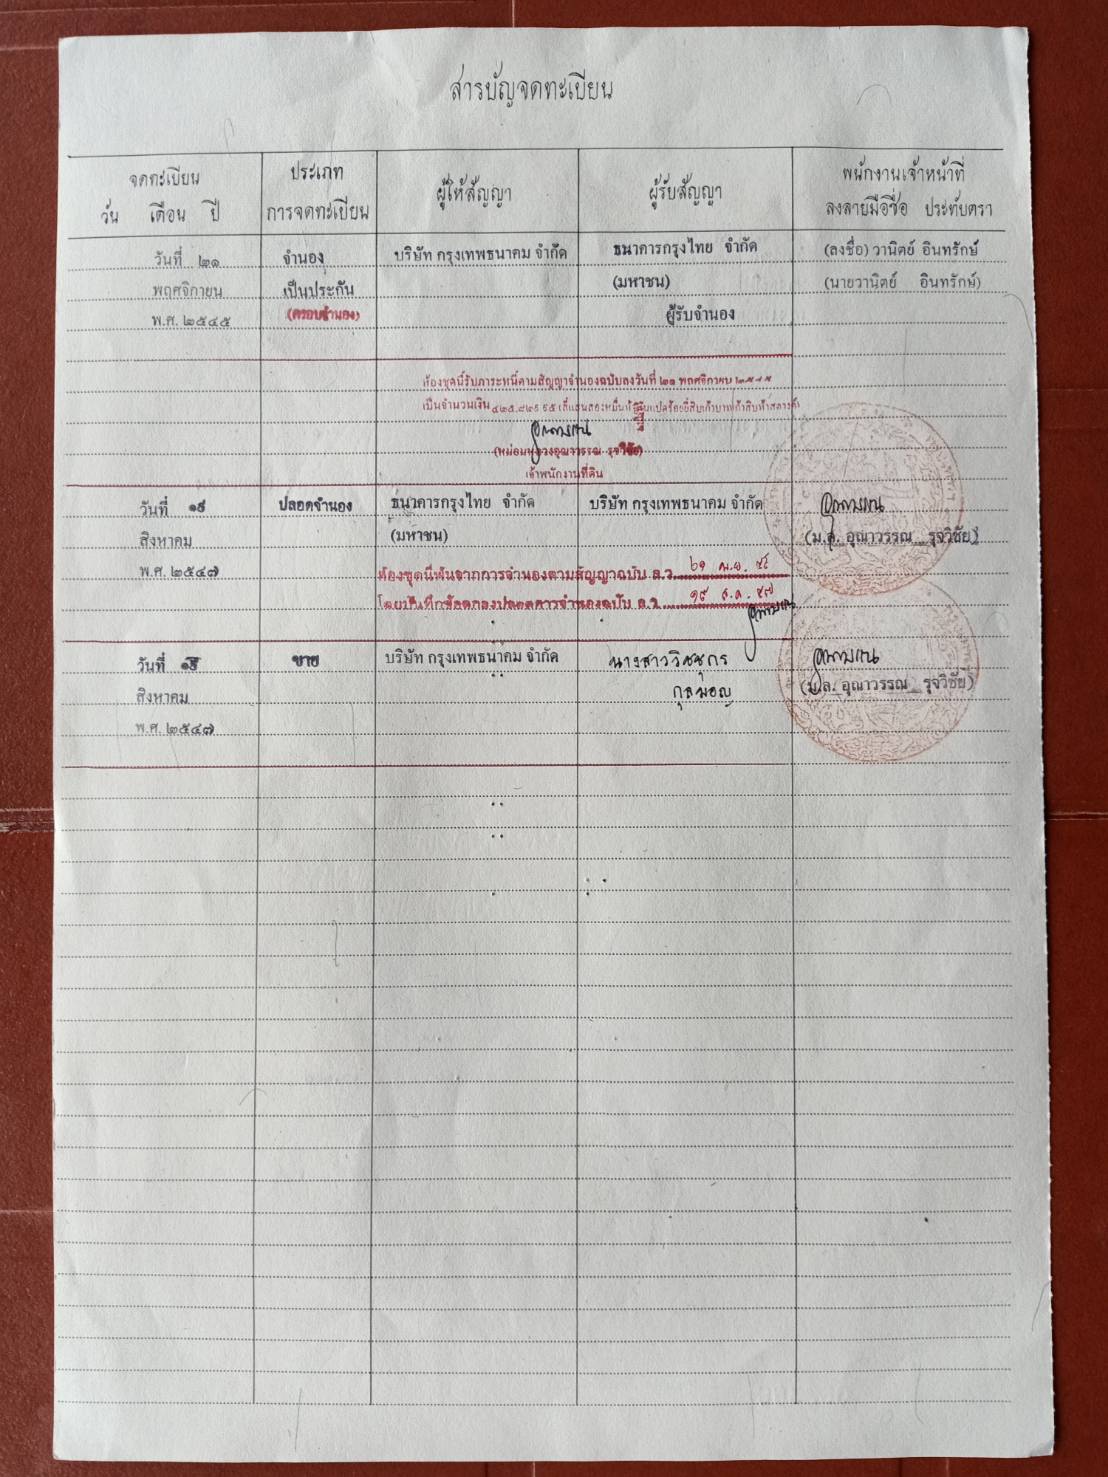 สารบัญจดทะเบียน
จดทะเบียน
วัน เดือน ปี
ประเภท
การจดทะเบียน
ผู้ให้สัญญา
ผู้รับสัญญา
พนักงานเจ้าหน้าที่
ลงลายมือชื่อ ประทับตรา
วันที่ ๒๑
พฤศจิกายน
พ.ศ. ๒๕๔๕
จำนอง
เป็นประกัน
(ครอบจำนอง)
บริษัท กรุงเทพธนาคม จำกัด
ธนาคารกรุงไทย จำกัด
(มหาชน)
ผู้รับจำนอง
(ลงชื่อ) วานิตย์ อินทรักษ์
(นายวานิตย์ อินทรักษ์)
ห้องชุดนี้รับภาระหนี้ตามสัญญาจำนองฉบับลงวันที่ ๒๑ พฤศจิกายน ๒๕๔๕
เป็นจำนวนเงิน
(หม่อมหลวงอุณาวรรณ รุจวิชัย)
เจ้าพนักงานที่ดิน
วันที่ ๑๙
สิงหาคม
พ.ศ. ๒๕๔๗
ปลอดจำนอง
ธนาคารกรุงไทย จำกัด
(มหาชน)
บริษัท กรุงเทพธนาคม จำกัด
(ม.ล. อุณาวรรณ รุจวิชัย)
ห้องชุดนี้พ้นจากการจำนองตามสัญญาฉบับ ล.ว. ๒๑ พ.ย. ๔๕
โดยบันทึกข้อตกลงปลอดการจำนองฉบับ ล.ว. ๑๙ ส.ค. ๔๗
วันที่ ๑๙
สิงหาคม
พ.ศ. ๒๕๔๗
ขาย
บริษัท กรุงเทพธนาคม จำกัด
นางสาววิชชุกร
(ม.ล. อุณาวรรณ รุจวิชัย)